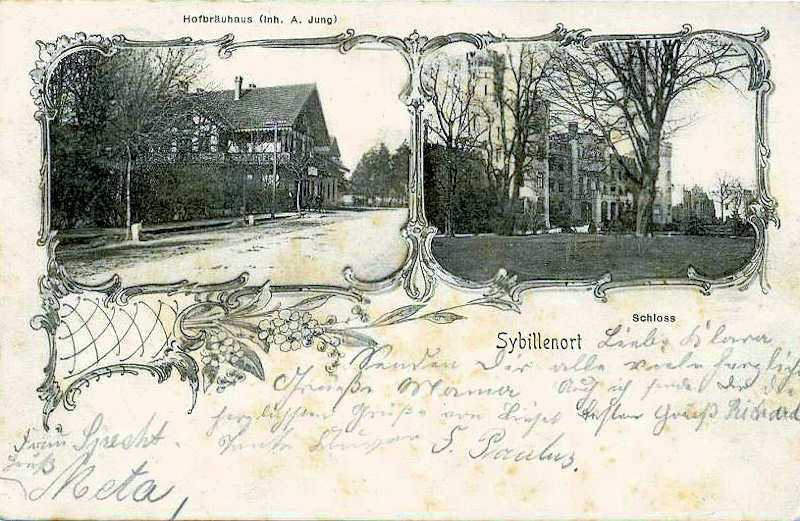 Hofbräuhaus (Inh. A. Jung)
Schloss
Sybillenort
Liebe Klara
Senden Dir alle viele herzliche
Grüße Mama Auch ich sende Dir die
herzlichsten Grüße von Gruß Richard
Tante S. Paulus.
Frau Specht.
Gruß
Meta